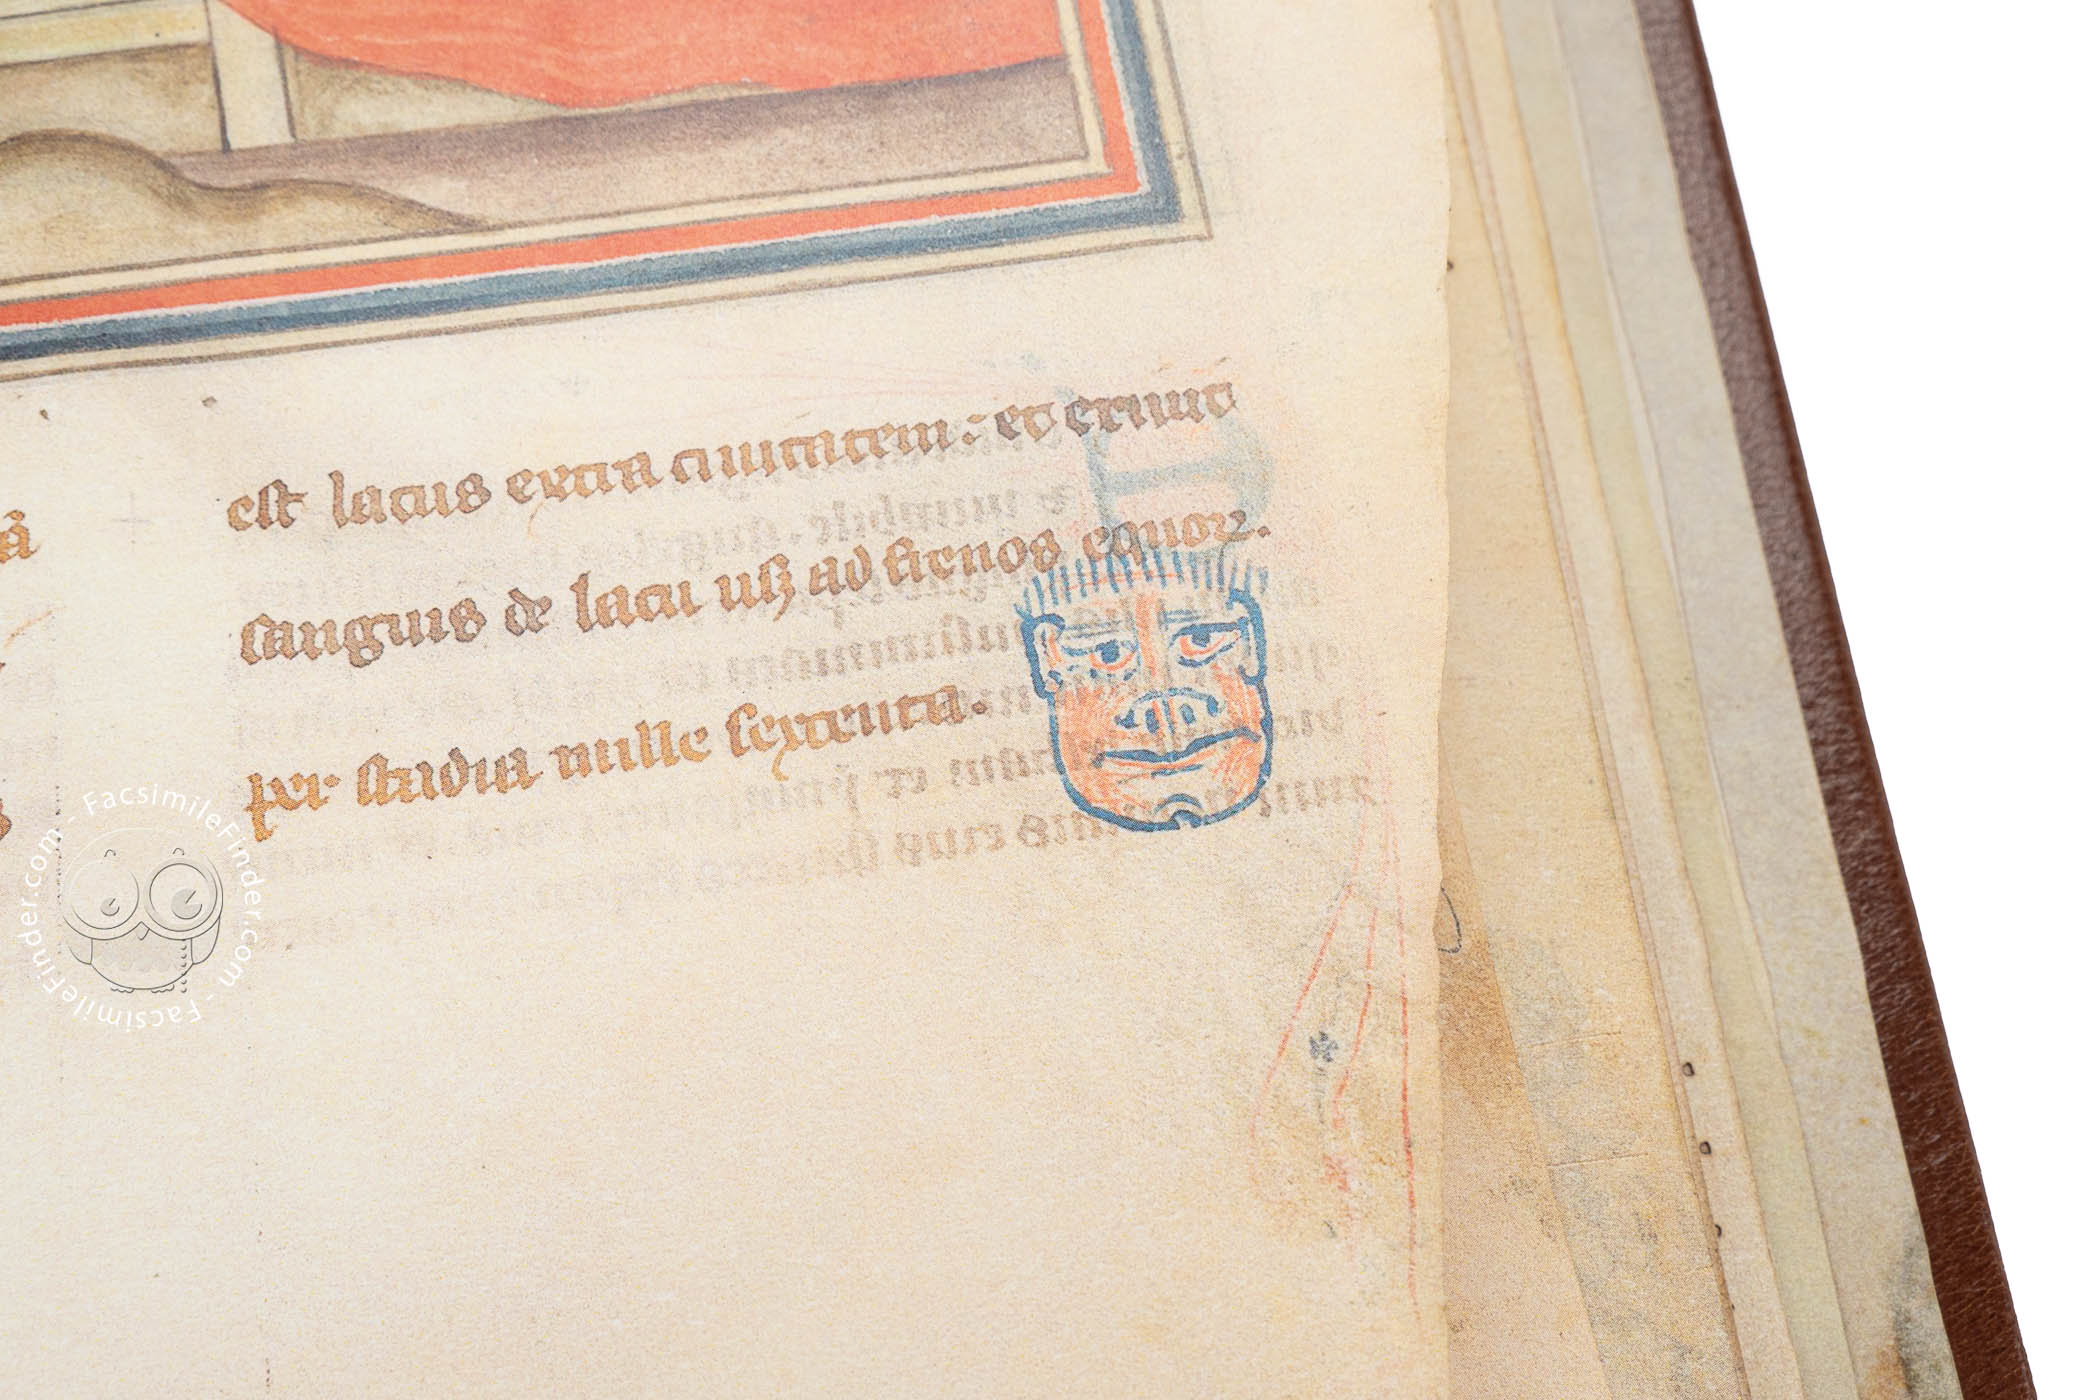 est lacus extra ciuitatem: et exiuit
sanguis de lacu usq ad frenos equor.
per stadia mille sexcenta.
FacsimileFinder.com - FacsimileFinder.com -